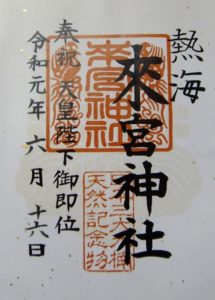 熱海
來宮神社
奉祝 天皇陛下御即位
令和元年 六月 十六日
來宮神社
天然記念物